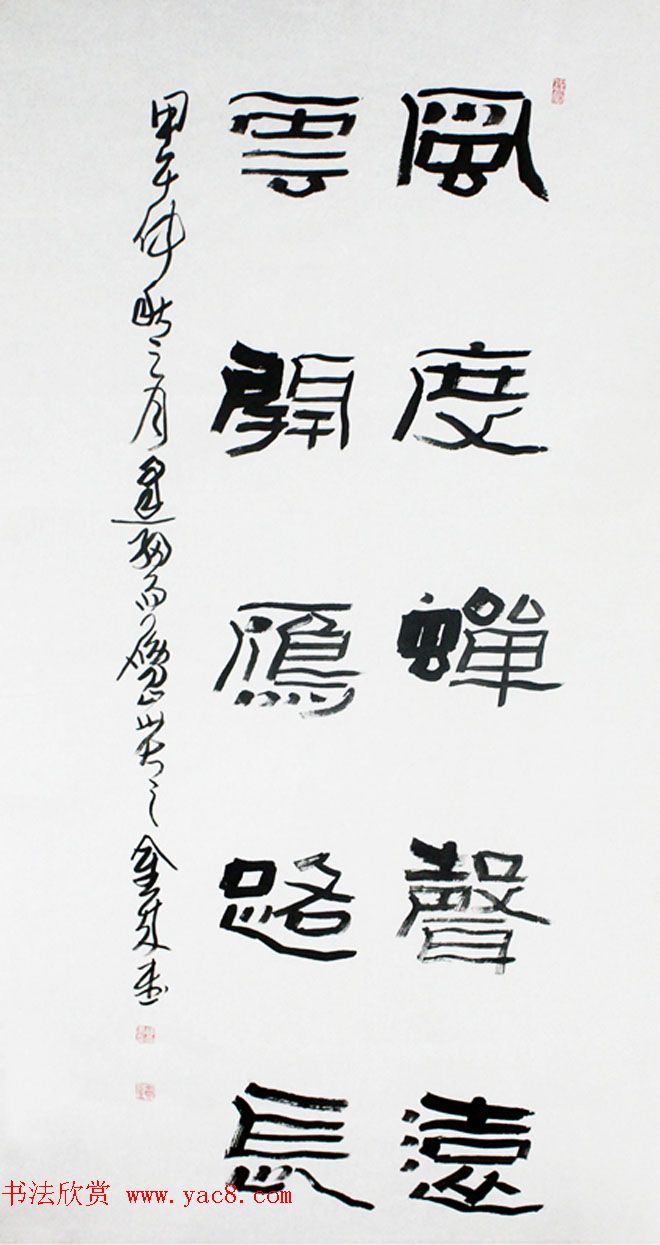 風度蟬聲遠
雲開鴈路長
甲午仲秋之月
书法欣赏 www.yac8.com